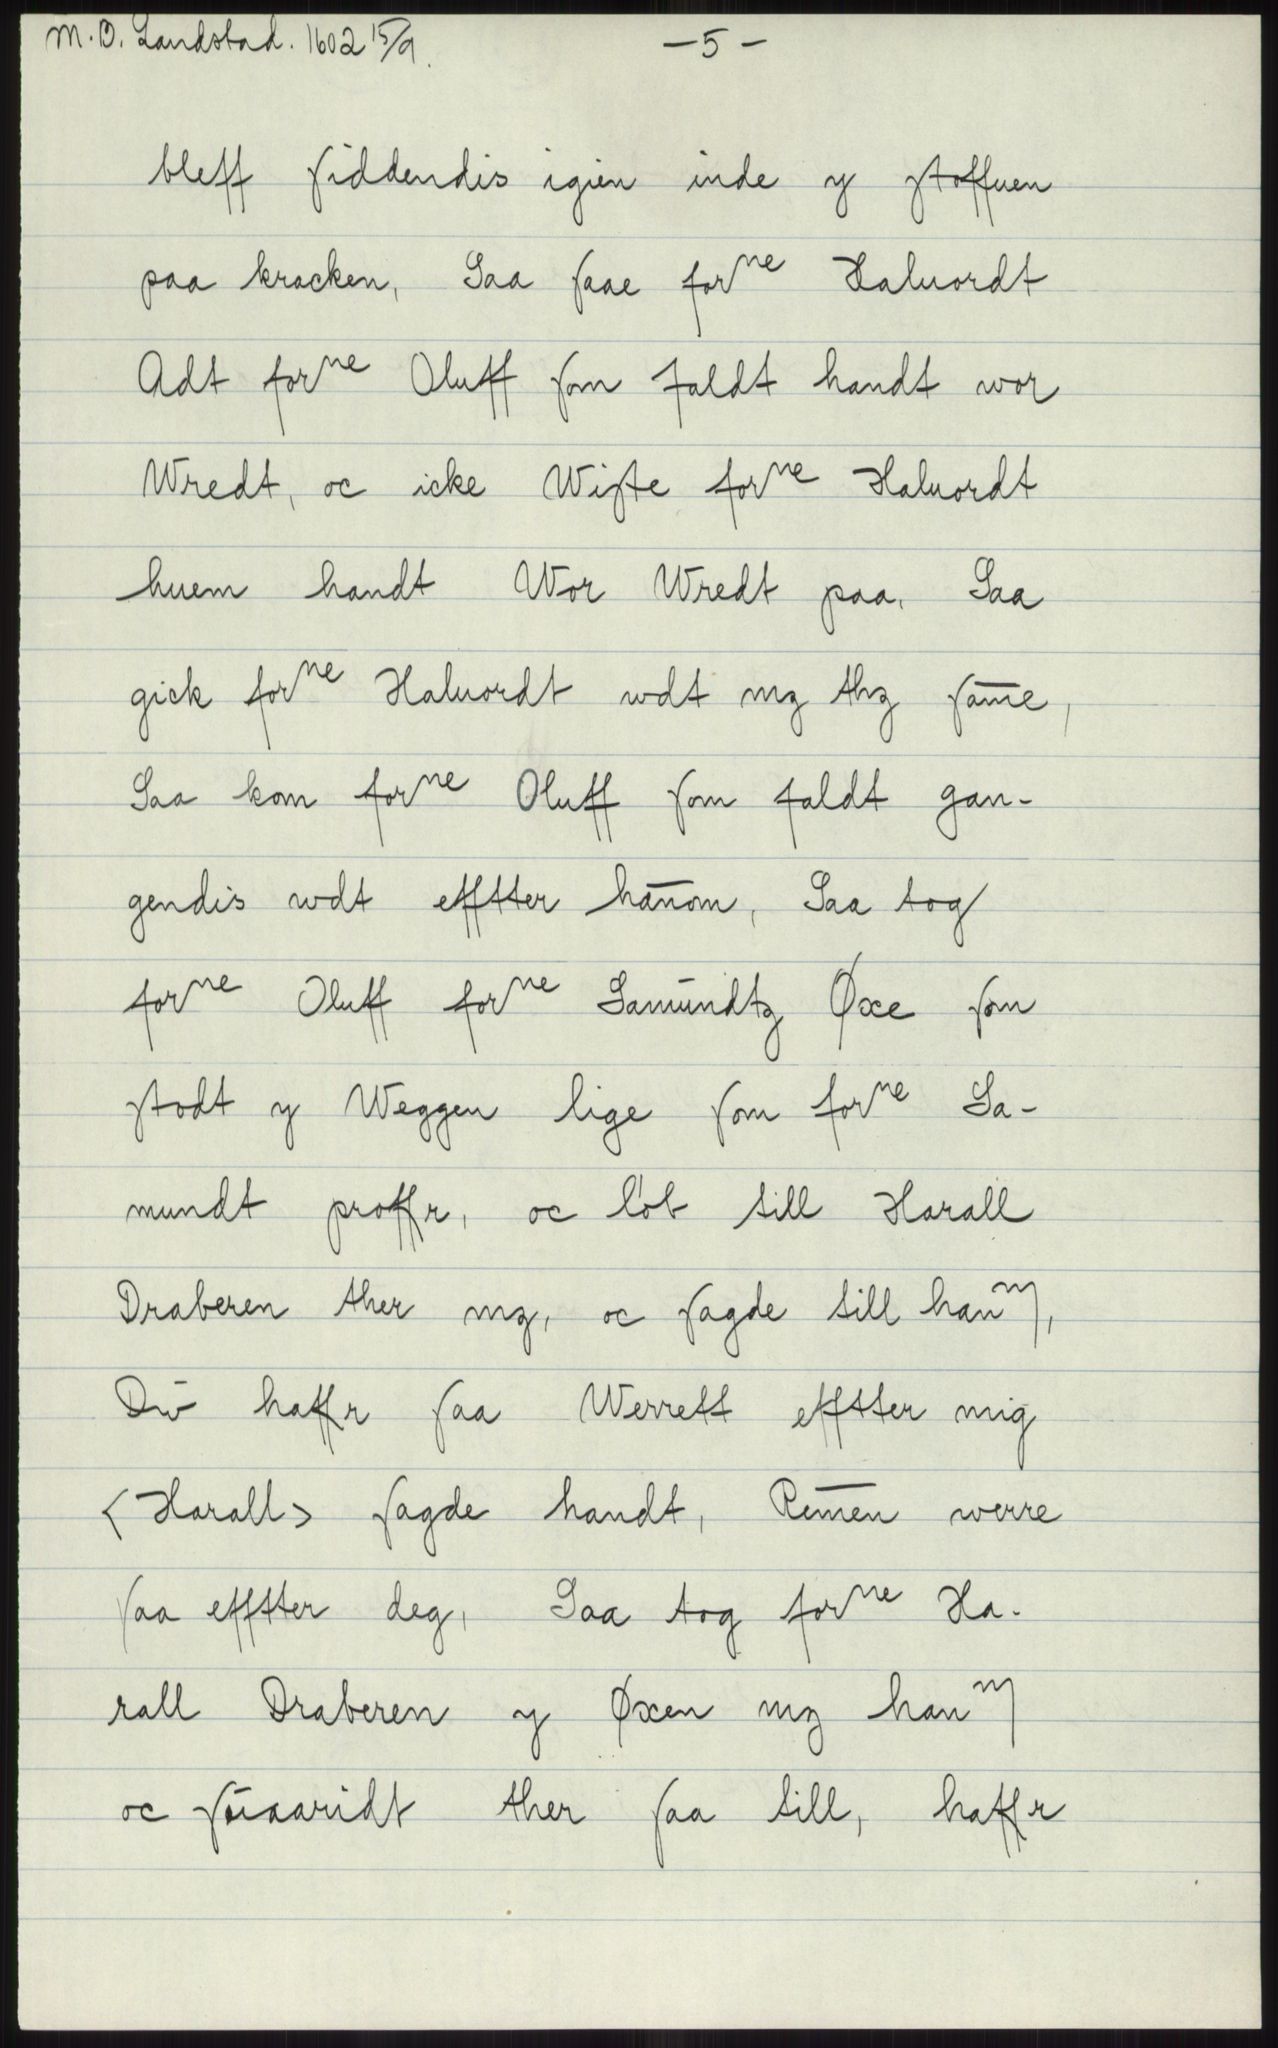 M.B. Landstad. 1602 15/9.
— 5 —
bleff siddendis igien inde y stoffuen
paa kracken, Saa saae forne Haluordt
Adt forne Oluff som faldt handt wor
Wredt, oc icke Wiste forne Haluordt
huem handt Wor Wredt paa, Saa
gick forne Haluordt wdt mz thz sam̄e,
Saa kom forne Oluff som faldt gan-
gendis wdt effter han̄om, Saa tog
forne Oluff forne Samundtz Øxe som
stodt y Weggen lige som forne Sa-
mundt proffr, oc løb till Harall
Draberen ther mz, oc sagde till hanm,
Du haffr saa Werrett effter mig
<Harall> sagde handt, Rem̄en werre
saa effter deg, Saa tog forne Ha-
rall Draberen y Øxen mz hanm
oc suaaridt ther saa till, haffr